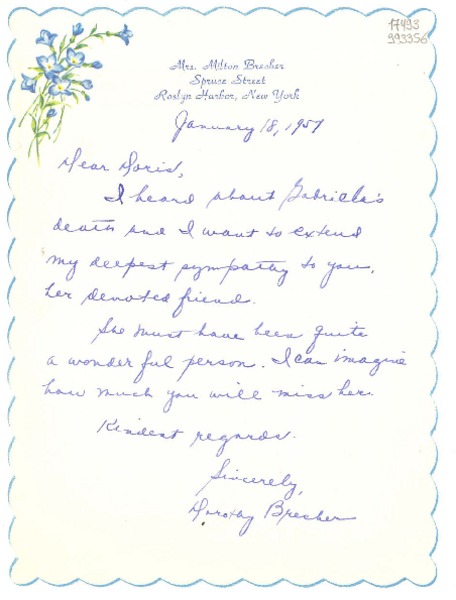 17493
993356
Mrs. Milton Brecher
Spruce Street
Roslyn Harbor, New York
January 18, 1957
Dear Doris,
I heard about Gabriela's
death and I want to extend
my deepest sympathy to you,
her devoted friend.
She must have been quite
a wonderful person. I can imagine
how much you will miss her.
Kindest regards.
Sincerely,
Dorothy Brecher